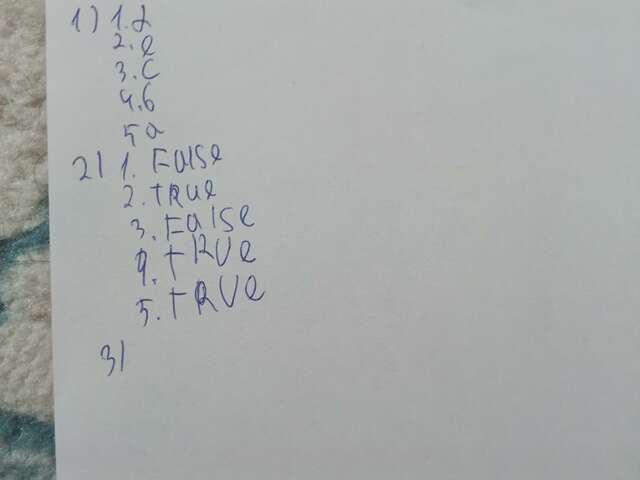 1) 1. d
2. e
3. c
4. b
5 a
2) 1. False
2. TRUe
3. False
4. TRUe
5. TRUe
3)